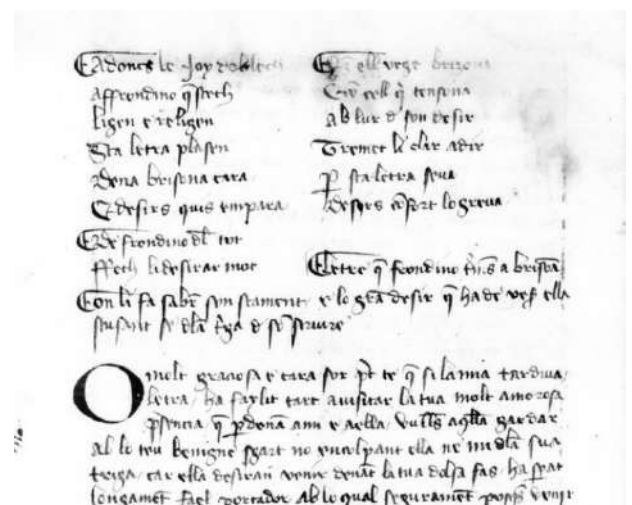 Adoncs le joy
Affrondino q̄ stech
ligen e religen
Sta letra plasen
Dona brisona cara
E desirs quis empara
E de frondino dl̄ tot
ffech li desirar mot
E ell vege brisona
Com cell q̄ tensona
Ab lur d son desir
Tremet li clar a dir
P̄ sta letra seva
Desirs e fort lo greva
Letre q̄ frondino a brisona
Con li fa saber son stament e lo grā desir q̄ ha de ella
scusant se dla d
O molt graciosa e cara sor te q̄ si la mia tardiva
letra ha fayllit tart avisitar la tua molt amorosa
p̄sencia q̄ p̄donān ami e aella vulls aq̄lla gardar
Ab lo teu benigne sgart no encolpant ella ne mi dla sua
triga car ella desirant venir denāt la tua dolsa fas ha sperat
longamēt fael portador Ab lo qual seguramēt venir